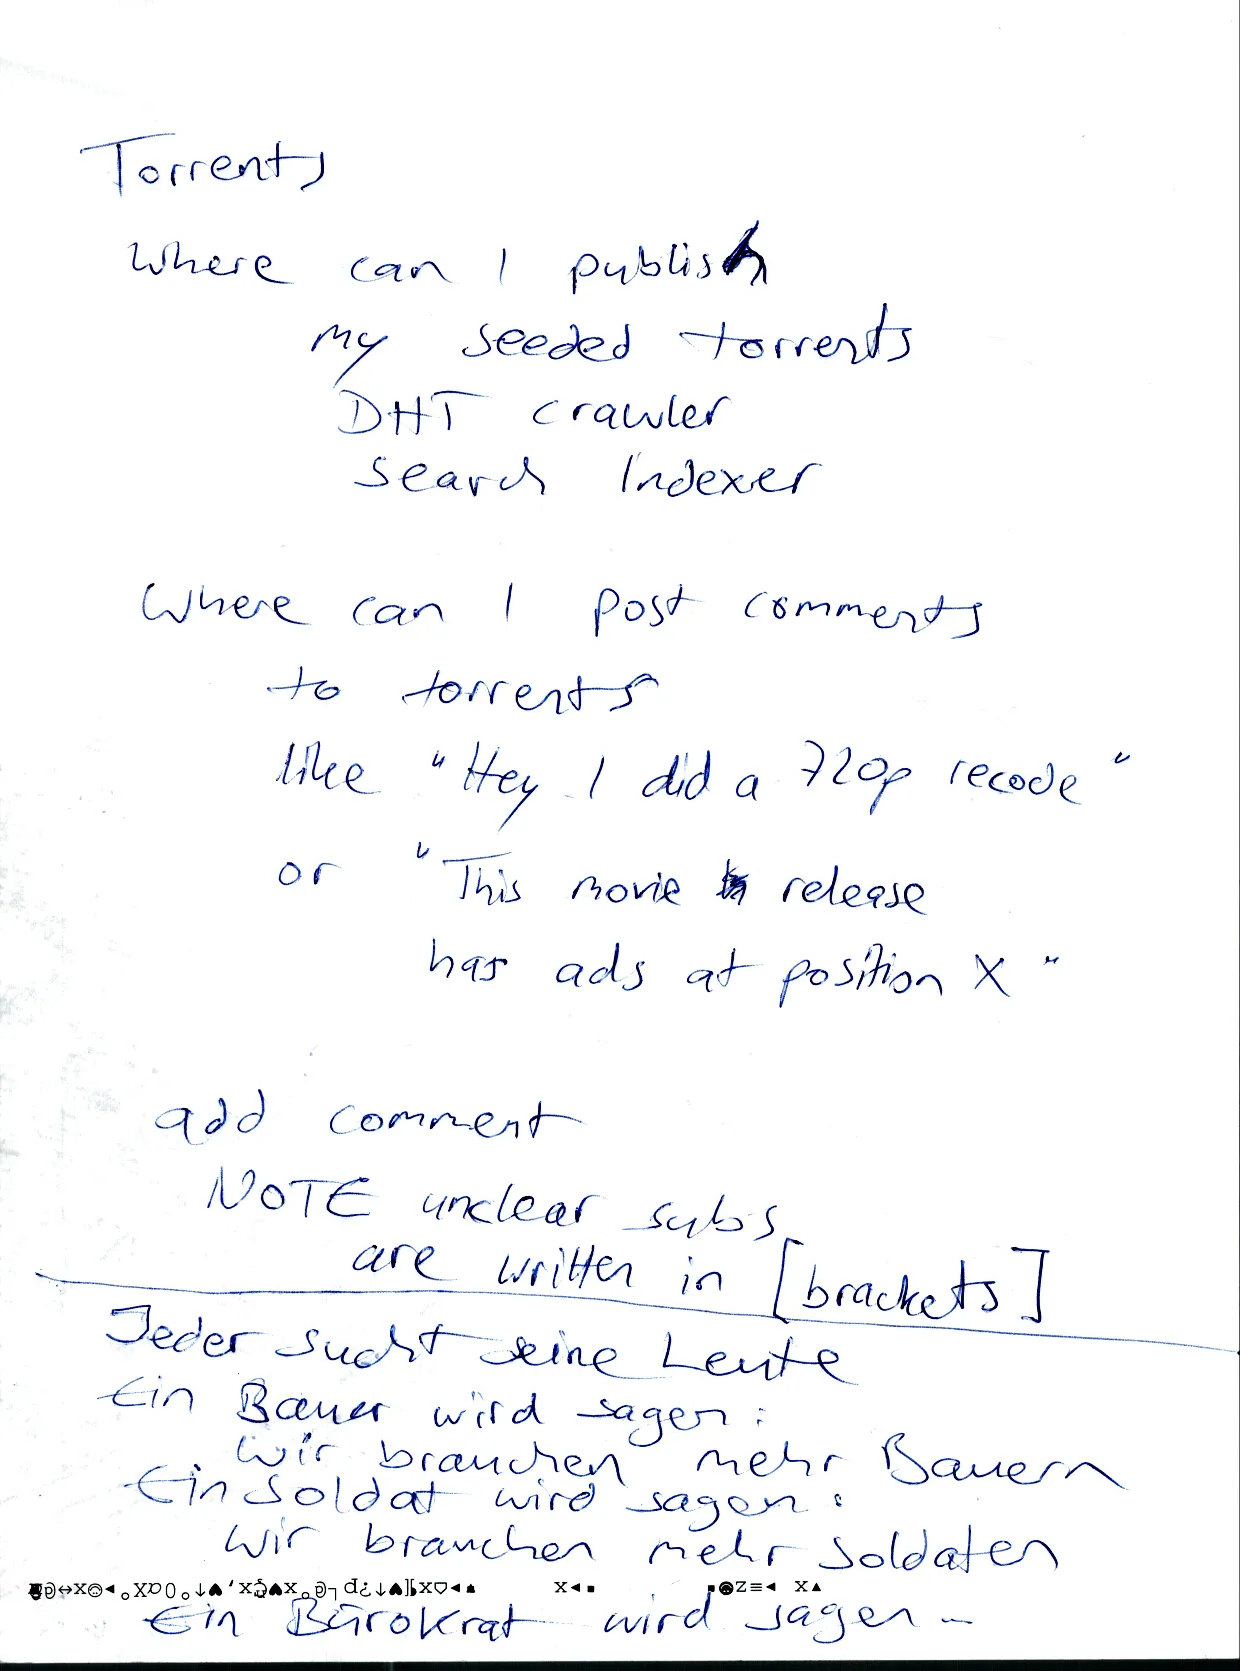 Torrents
Where can I publish
my seeded torrents
DHT crawler
Search Indexer
Where can I post comments
to torrents
like "Hey I did a 720p recode"
or "This movie release
has ads at position X"
add comment
NOTE unclear subs
are written in [brackets]
Jeder sucht seine Leute
Ein Bauer wird sagen:
Wir brauchen mehr Bauern
Ein Soldat wird sagen:
Wir brauchen mehr Soldaten
Ein Bürokrat wird sagen...